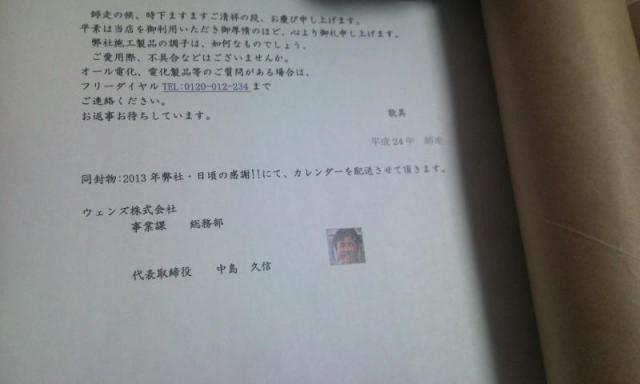 師走の候、時下ますますご清祥の段、お慶び申し上げます。
平素は当店を御利用いただき御厚情のほど、心より御礼申し上げます。
弊社施工製品の調子は、如何なものでしょう、
ご愛用際、不具合などはございませんか。
オール電化、電化製品等のご質問がある場合は、
フリーダイヤル TEL:0120-012-234 まで
ご連絡ください。
お返事お待ちしています。
敬具
平成 24 年 師走
同封物:2013 年弊社・日頃の感謝!!にて、カレンダーを配送させて頂きます。
ウェンズ株式会社
事業課 総務部
代表取締役 中島 久信